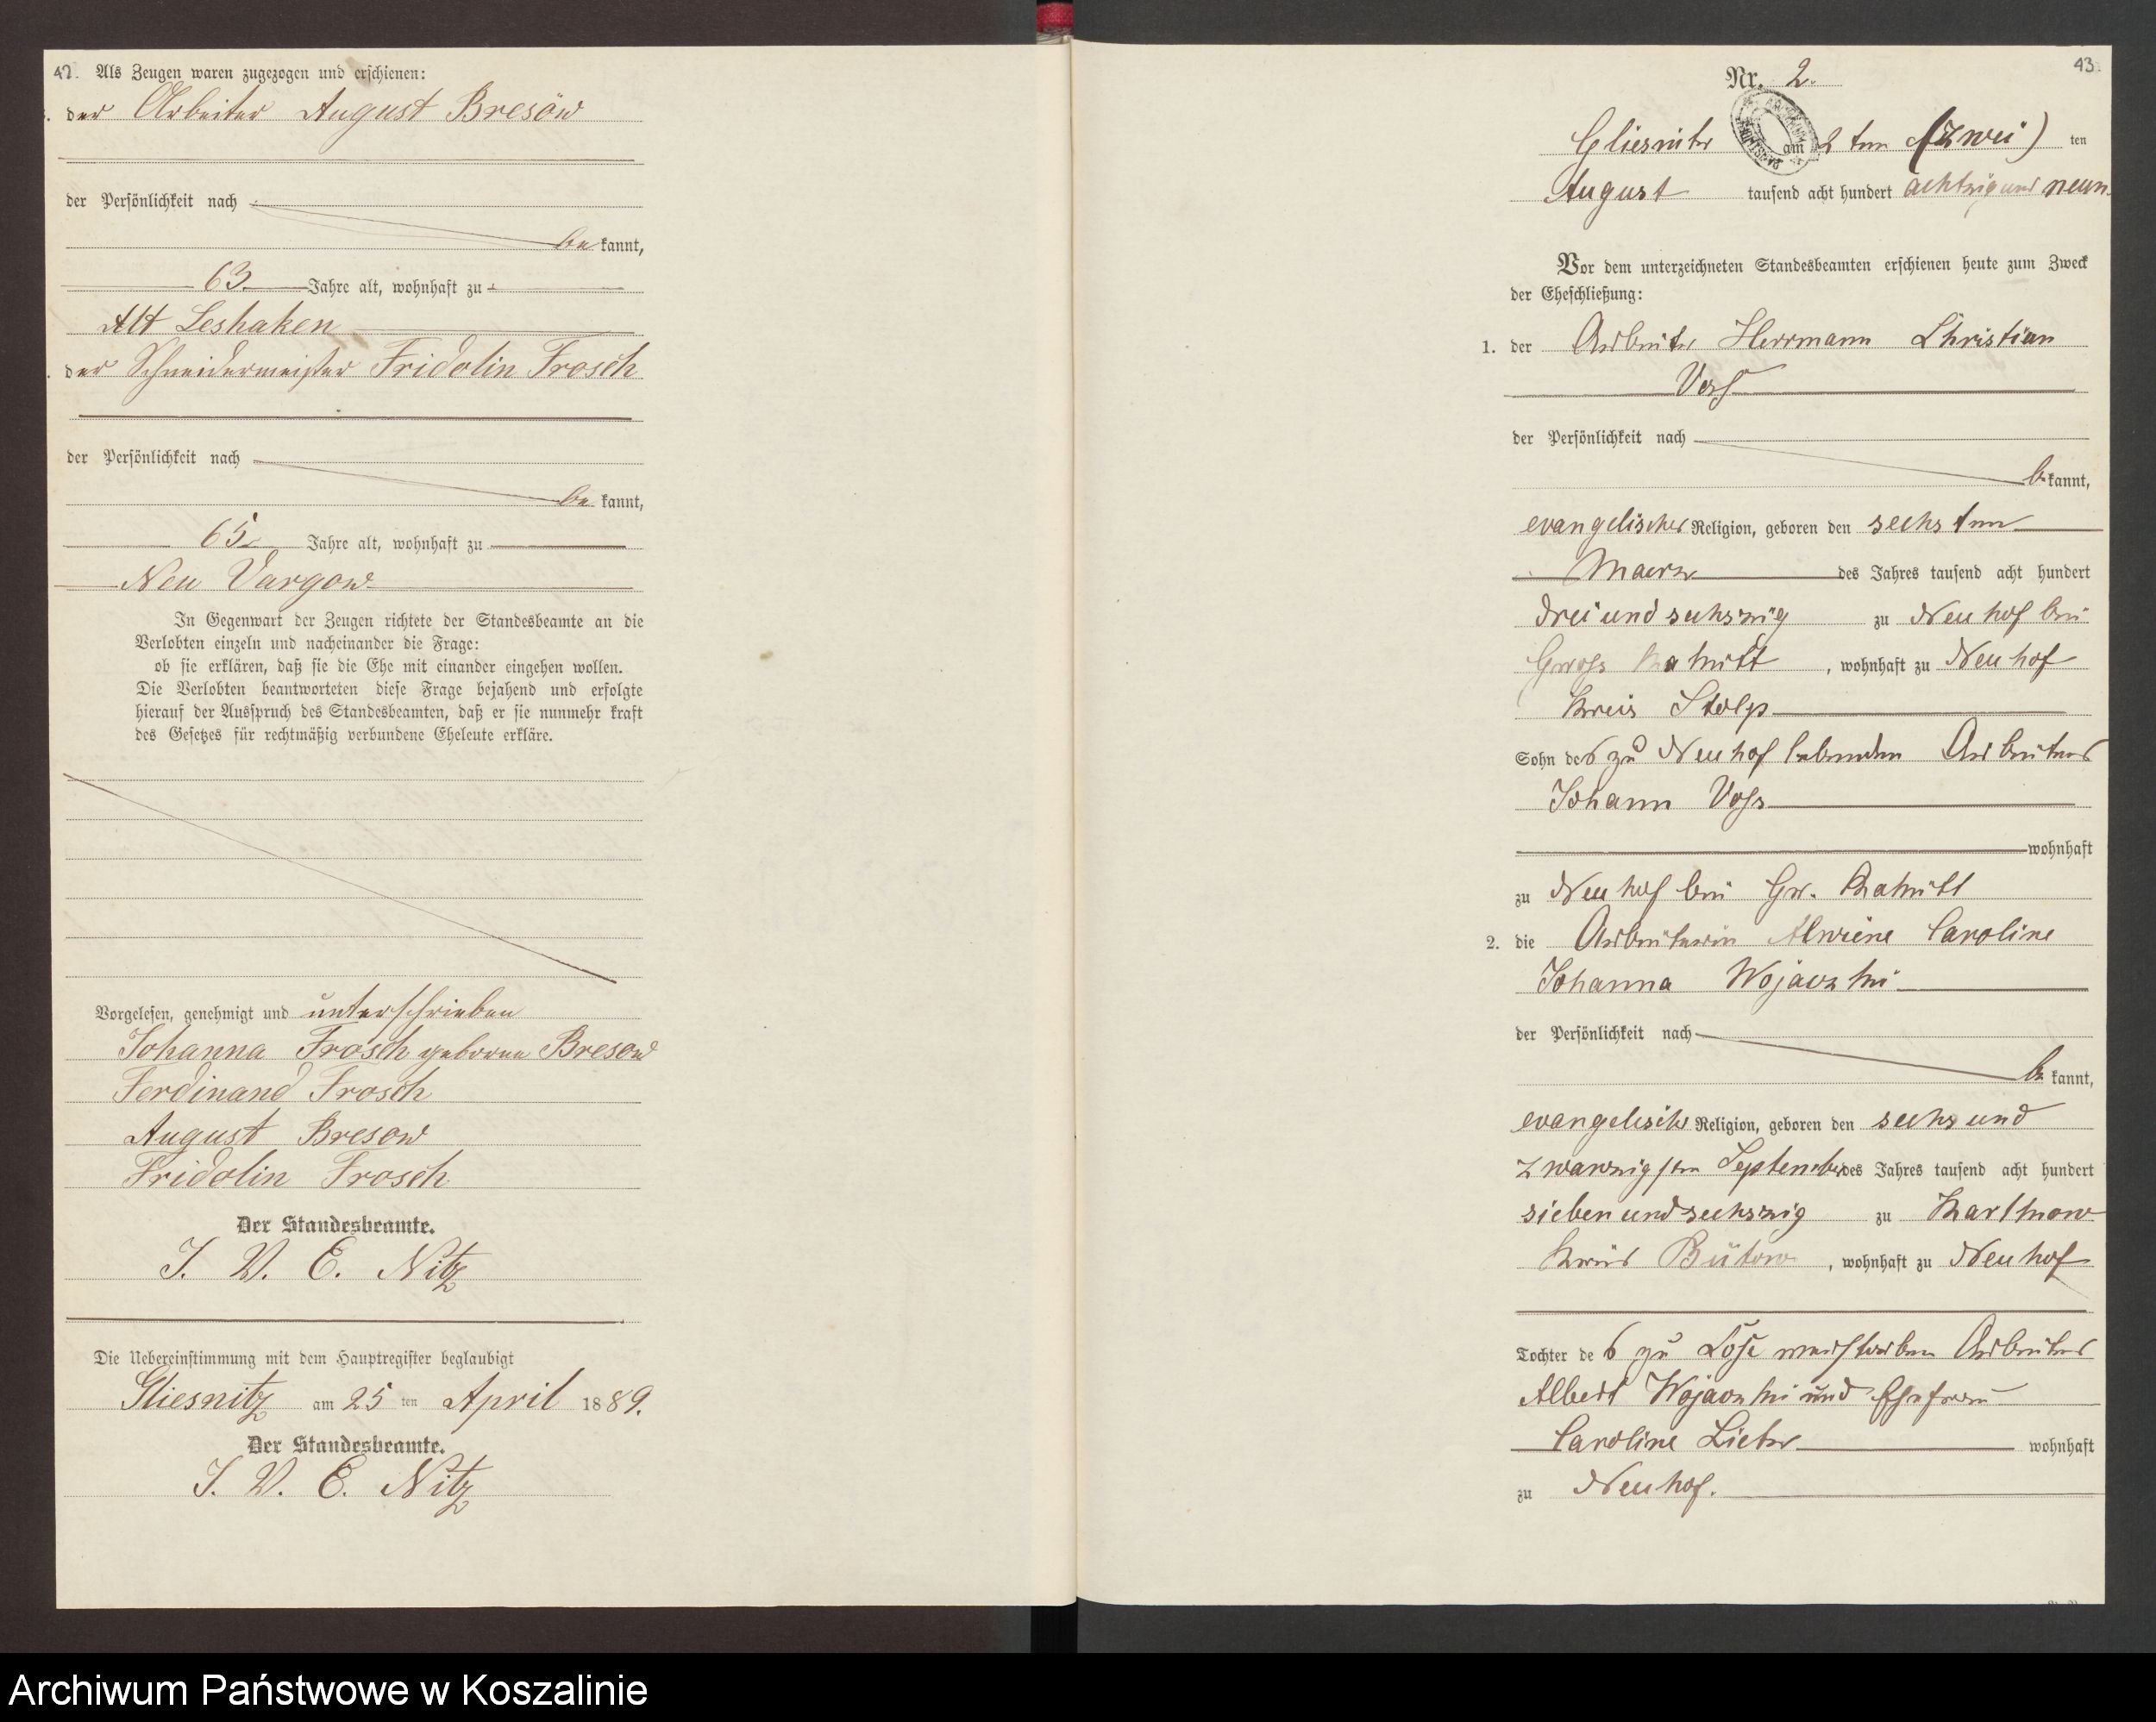 42.
Als Zeugen waren zugezogen und erschienen:
der Arbeiter August Bresow
der Persönlichkeit nach
be kannt,
63 Jahre alt, wohnhaft zu
Alt Leshaken
der Schneidermeister Fridolin Frosch
der Persönlichkeit nach
be kannt,
65 Jahre alt, wohnhaft zu
Neu Vargow
In Gegenwart der Zeugen richtete der Standesbeamte an die
Verlobten einzeln und nacheinander die Frage:
ob sie erklären, daß sie die Ehe mit einander eingehen wollen.
Die Verlobten beantworteten diese Frage bejahend und erfolgte
hierauf der Ausspruch des Standesbeamten, daß er sie nunmehr kraft
des Gesetzes für rechtmäßig verbundene Eheleute erkläre.
Vorgelesen, genehmigt und unterschrieben
Johanna Frosch geborne Bresow
Ferdinand Frosch
August Bresow
Fridolin Frosch
Der Standesbeamte.
I. V. E. Nitz
Die Uebereinstimmung mit dem Hauptregister beglaubigt
Gliesnitz am 25 ten April 1889.
Der Standesbeamte.
I. V. E. Nitz
43.
Nr. 2.
Gliesnitz am 2 ten (zwei) ten
August tausend acht hundert achtzig und neun
Vor dem unterzeichneten Standesbeamten erschienen heute zum Zweck
der Eheschließung:
1. der Arbeiter Herrmann Christian
Voss
der Persönlichkeit nach
be kannt,
evangelischer Religion, geboren den sechsten
Maerz des Jahres tausend acht hundert
drei und sechszig zu Neuhof bei
Gross , wohnhaft zu Neuhof
Kreis Stolp
Sohn des zu Neuhof lebenden Arbeiters
Johann Voss
wohnhaft
zu Neuhof bei Gr.
2. die Arbeiterin Alwiene Caroline
Johanna Wojaczki
der Persönlichkeit nach
be kannt,
evangelischer Religion, geboren den sechs und
zwanzigsten September des Jahres tausend acht hundert
sieben und sechszig zu
Kreis Bütow , wohnhaft zu Neuhof
Tochter des zu verstorbenen Arbeiters
Albert Wojaczki und Ehefrau
Caroline wohnhaft
zu Neuhof.
Archiwum Państwowe w Koszalinie